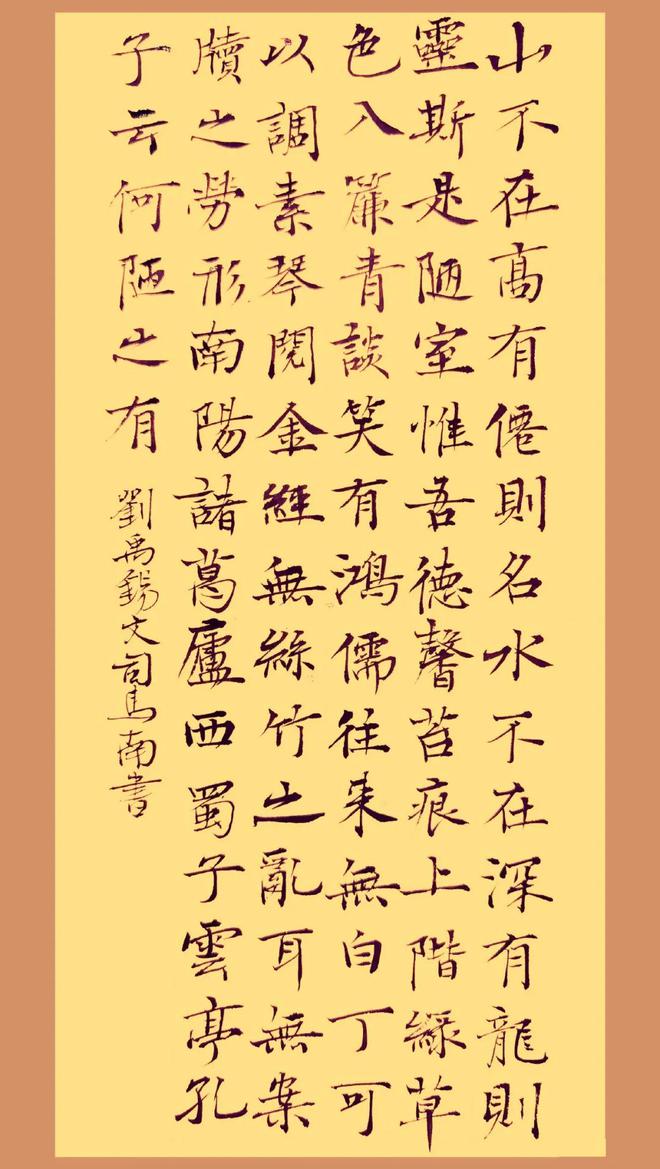 山不在高有僊則名水不在深有龍則
靈斯是陋室惟吾德馨苔痕上階綠草
色入簾青談笑有鴻儒往來無白丁可
以調素琴閱金經無絲竹之亂耳無案
牘之勞形南陽諸葛廬西蜀子雲亭孔
子云何陋之有
劉禹錫文司馬南書